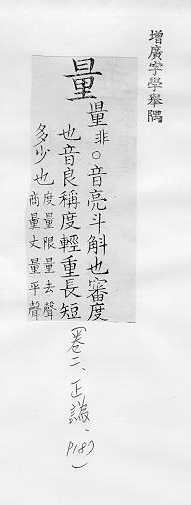 增廣字學舉隅
量
量非○音亮斗斛也審度
也音良稱度輕重長短
多少也度量限量去聲
商量丈量平聲
(卷二、正譌、P187)